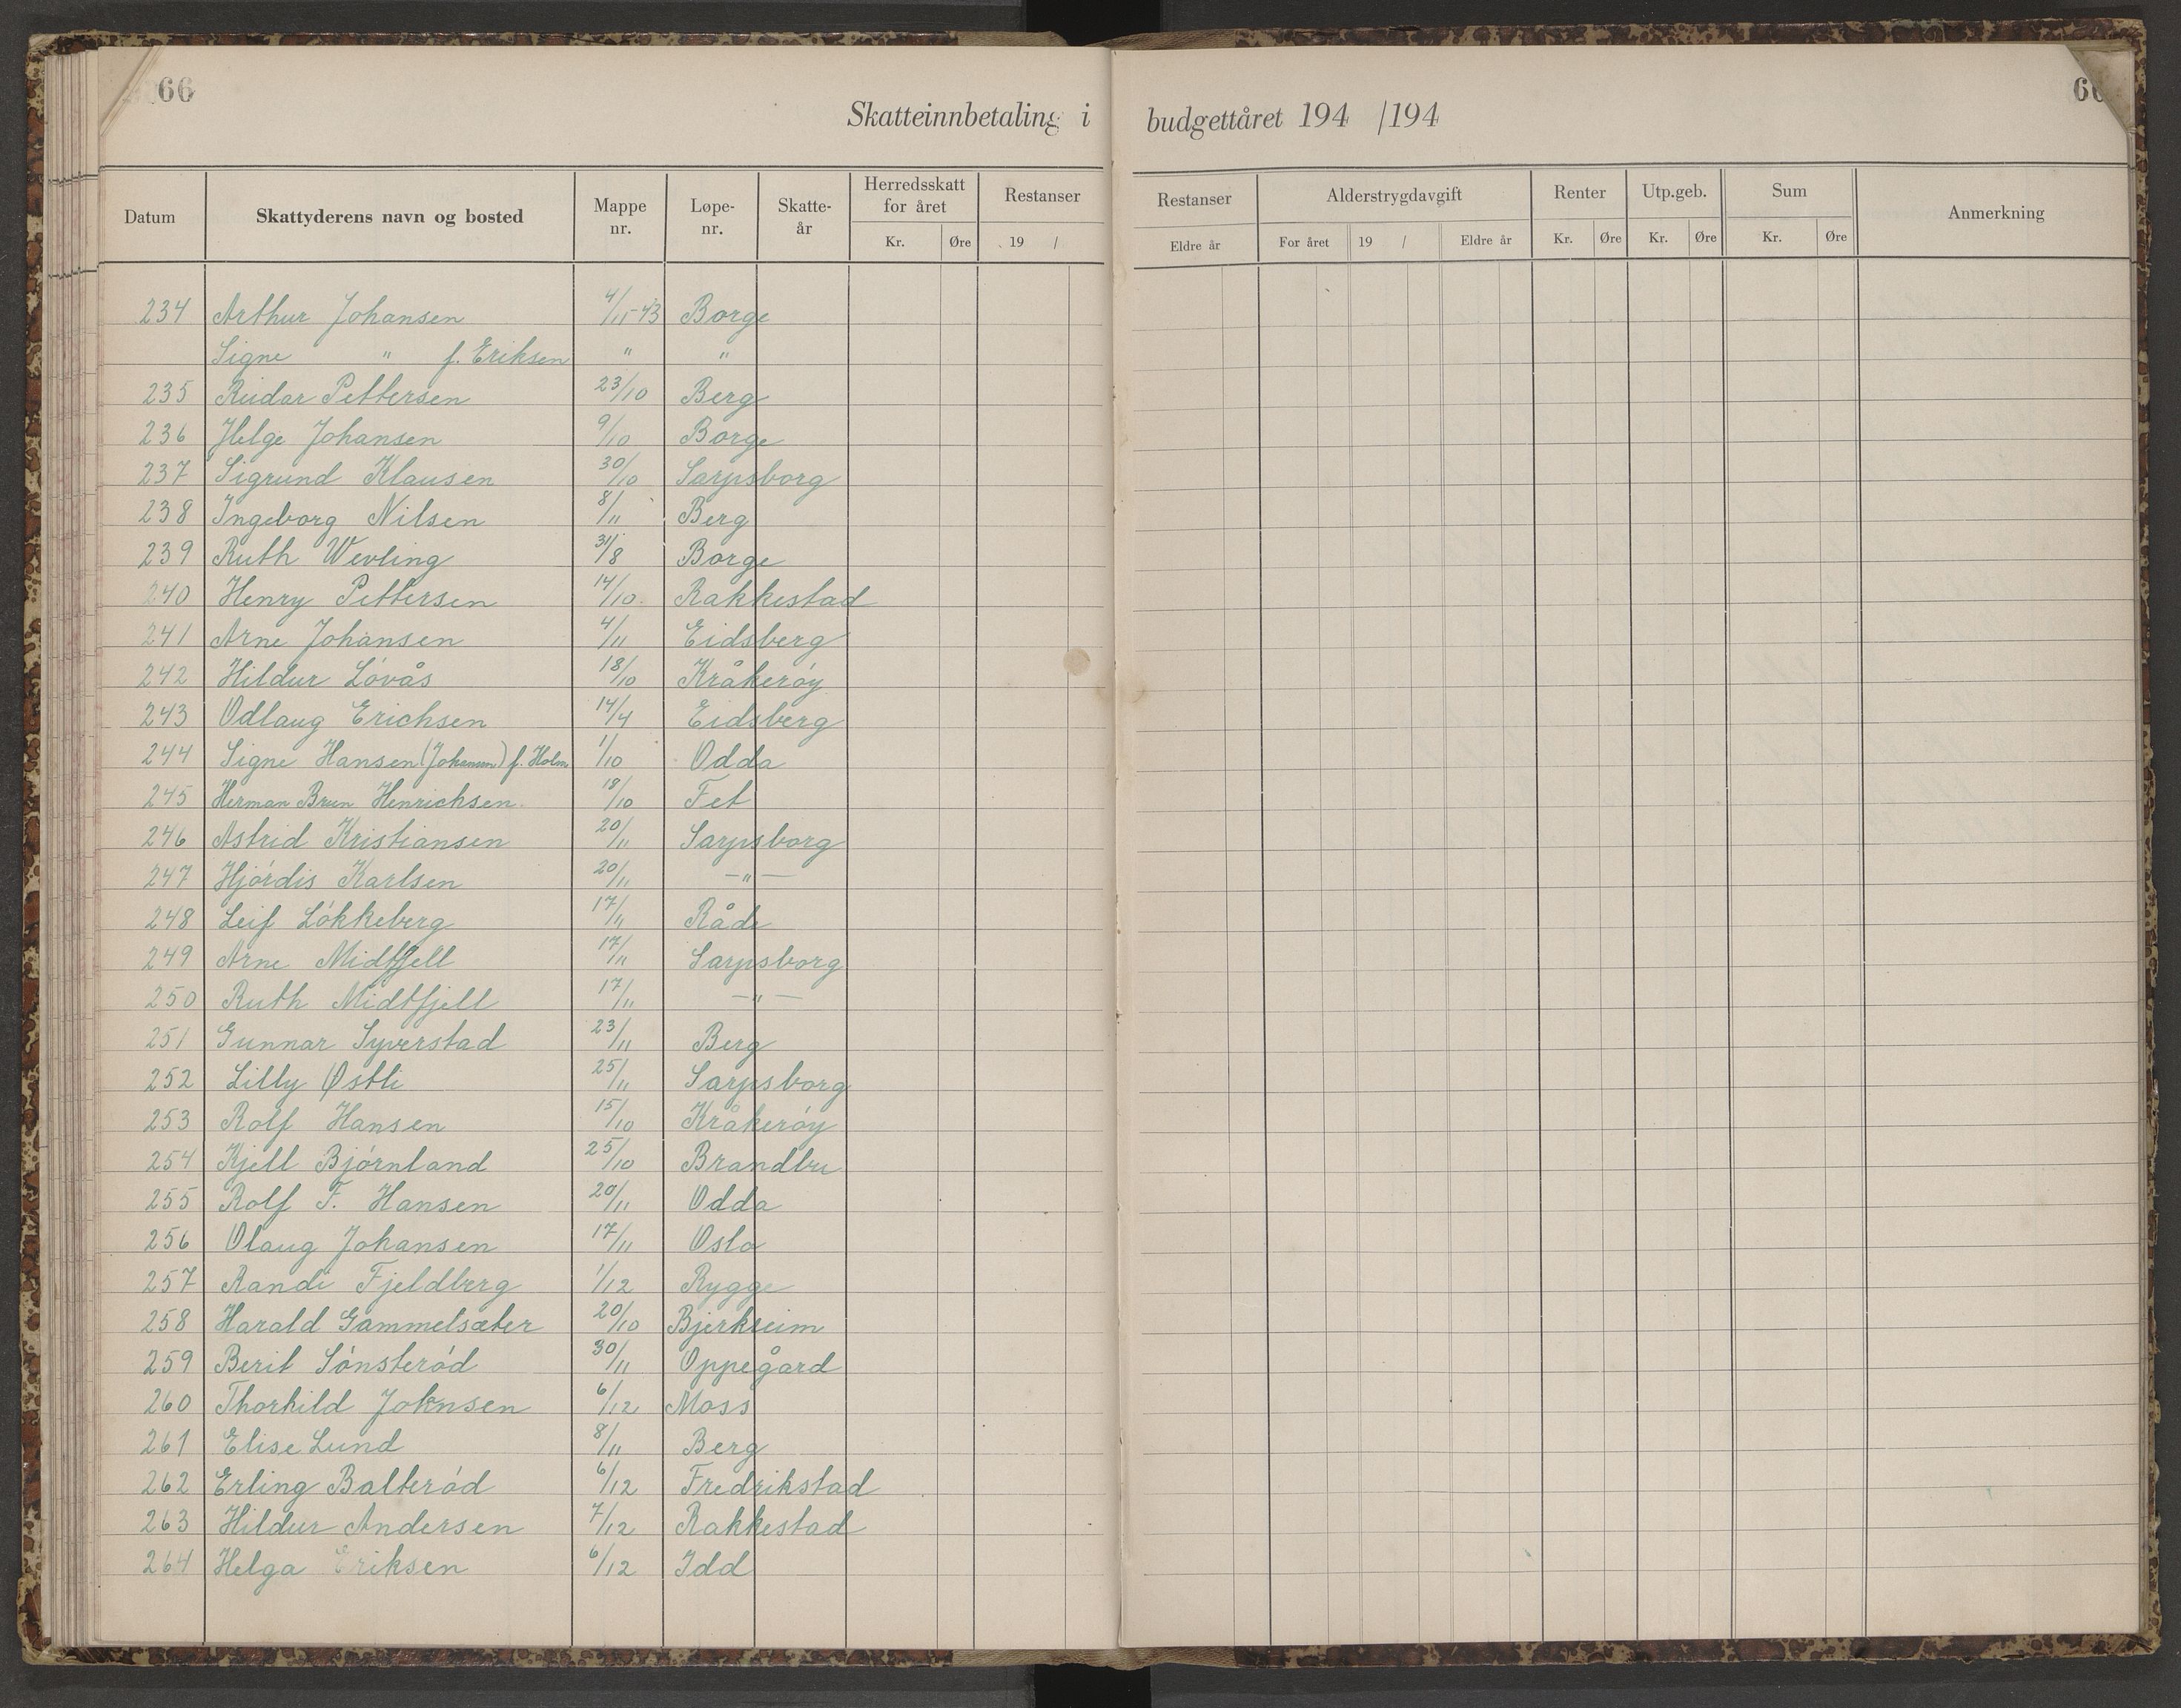 66
Skatteinnbetaling i budgettåret 194 /194
Datum Skattyderens navn og bosted Mappe nr. Løpe- nr. Skatte- år Herredsskatt for året Restanser Restanser Alderstrygdavgift Renter Utp.geb. Sum Anmerkning
Kr. Øre 19 / Eldre år For året 19 / Eldre år Kr. Øre Kr. Øre Kr. Øre
234 Arthur Johansen 4/11-43 Borge
Signe " f. Eriksen " "
235 Reidar Pettersen 23/10 Berg
236 Helge Johansen 9/10 Borge
237 Sigrund Klausen 30/10 Sarpsborg
238 Ingeborg Nilsen 8/11 Berg
239 Ruth Wevling 31/8 Borge
240 Henry Pettersen 14/10 Rakkestad
241 Arne Johansen 4/11 Eidsberg
242 Hildur Lövås 18/10 Kråkeröy
243 Odlaug Erichsen 14/4 Eidsberg
244 Signe Hansen (Johansen) f. Holm 1/10 Odda
245 Herman Brun Henrichsen 18/10 Fet
246 Astrid Kristiansen 20/11 Sarpsborg
247 Hjördis Karlsen 20/11 — " —
248 Leif Lökkeberg 17/11 Råde
249 Arne Midtfjell 17/11 Sarpsborg
250 Ruth Midtfjell 17/11 — " —
251 Gunnar Syverstad 23/11 Berg
252 Lilly Østli 25/11 Sarpsborg
253 Rolf Hansen 15/10 Kråkeröy
254 Kjell Björnland 25/10 Brandbu
255 Rolf F. Hansen 20/11 Odda
256 Olaug Johansen 17/11 Oslo
257 Randi Fjeldberg 1/12 Rygge
258 Harald Gammelsæter 20/10 Bjerkreim
259 Berit Sönsteröd 30/11 Oppegård
260 Thorkild Johnsen 6/12 Moss
261 Elise Lund 8/11 Berg
262 Erling Balteröd 6/12 Fredrikstad
263 Hildur Andersen 7/12 Rakkestad
264 Helga Eriksen 6/12 Idd